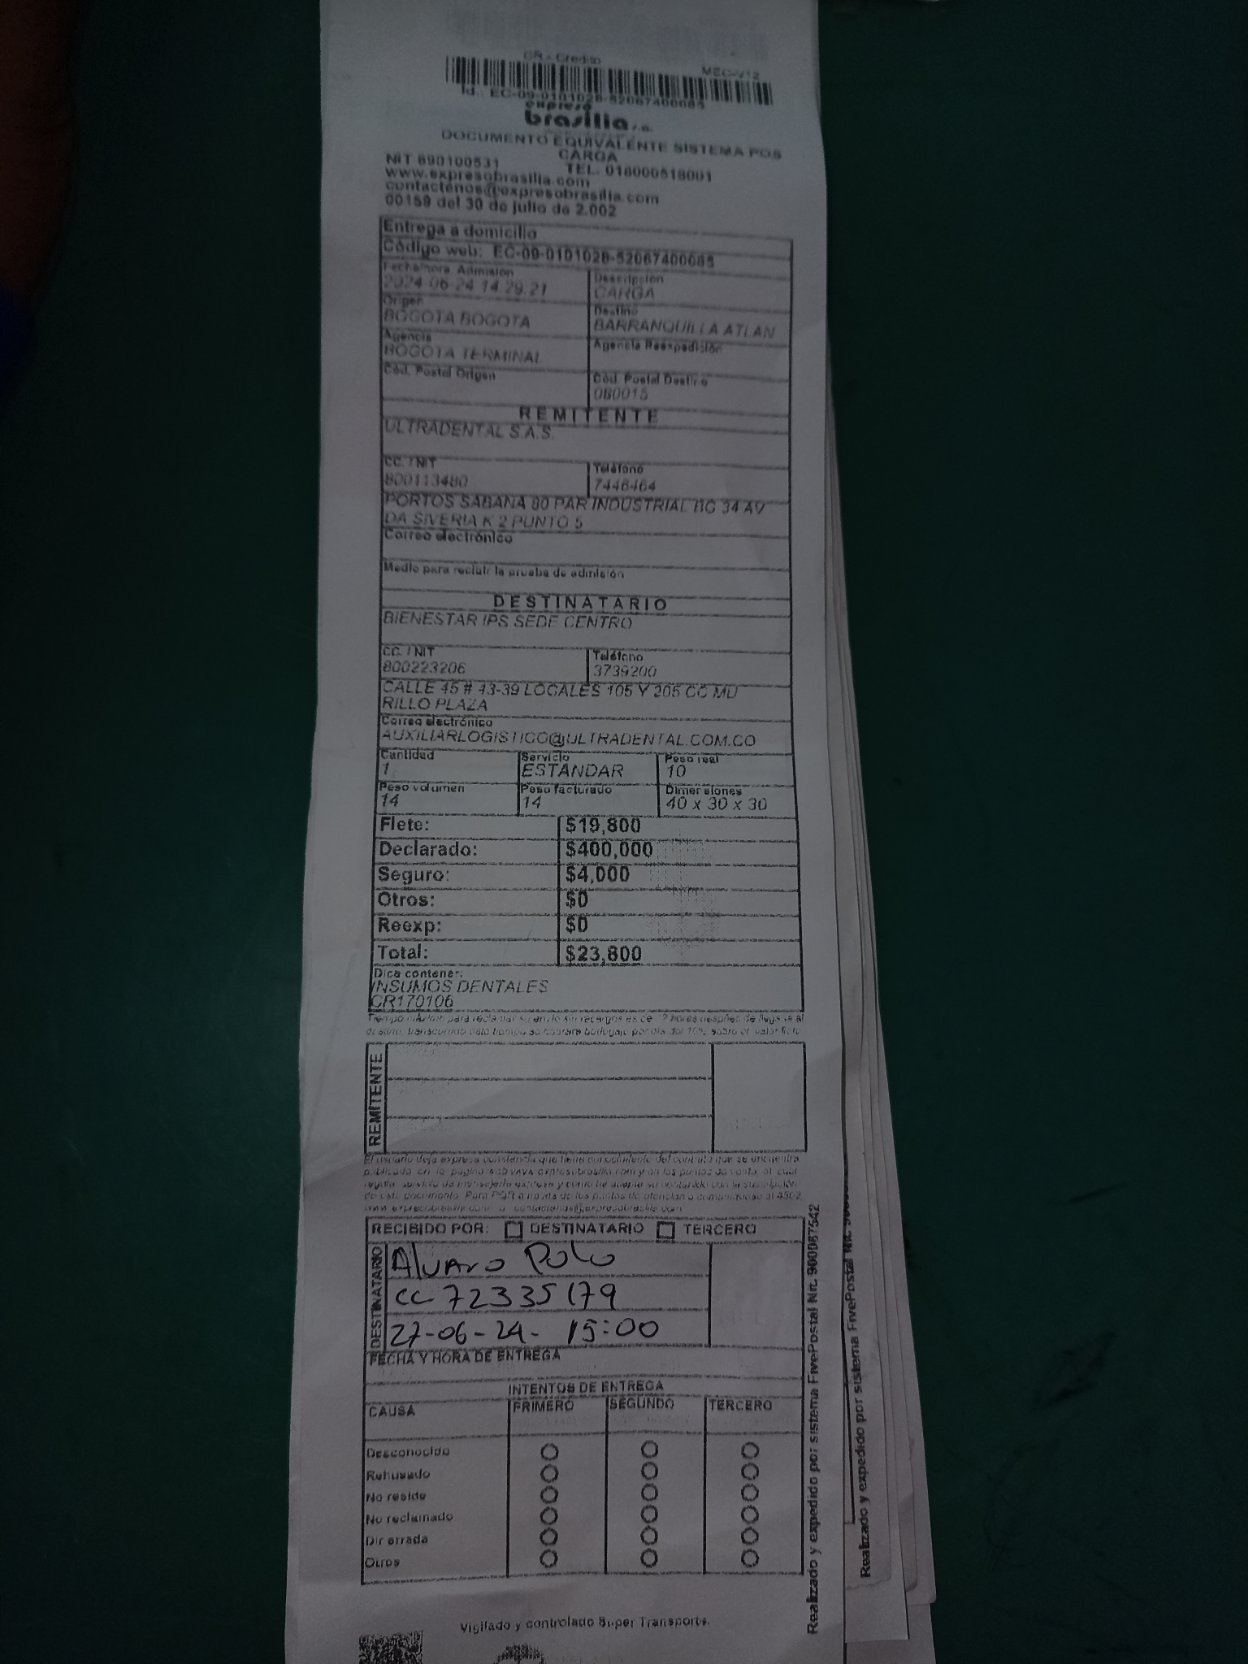 CR - Credito
MEC-V12
Id.: EC-09-0101028-52067400085
expreso
brasilia s.a.
DOCUMENTO EQUIVALENTE SISTEMA POS
CARGA
NIT 890100531
TEL. 018000518001
www.expresobrasilia.com
contactenos@expresobrasilia.com
00159 del 30 de julio de 2.002
Entrega a domicilio
Código web: EC-09-0101028-52067400085
Fecha/hora Admisión
Descripción
2024-06-24 14:29:21
CARGA
Origen
Destino
BOGOTA BOGOTA
BARRANQUILLA ATLAN
Agencia
Agencia Reexpedición
BOGOTA TERMINAL
Cód. Postal Origen
Cód. Postal Destino
080015
REMITENTE
ULTRADENTAL S.A.S.
CC. / NIT
Teléfono
800113480
7446464
PORTOS SABANA 80 PAR INDUSTRIAL BG 34 AV
DA SIVERIA K 2 PUNTO 5
Correo electrónico
Medio para recibir la prueba de admisión
DESTINATARIO
BIENESTAR IPS SEDE CENTRO
CC. / NIT
Teléfono
800223206
3739200
CALLE 45 # 43-39 LOCALES 105 Y 205 CC MU
RILLO PLAZA
Correo electrónico
AUXILIARLOGISTICO@ULTRADENTAL.COM.CO
Cantidad
Servicio
Peso real
1
ESTANDAR
10
Peso volumen
Peso facturado
Dimensiones
14
14
40 x 30 x 30
Flete: $19,800
Declarado: $400,000
Seguro: $4,000
Otros: $0
Reexp: $0
Total: $23,800
Dice contener:
INSUMOS DENTALES
CR170106
REMITENTE
RECIBIDO POR: DESTINATARIO TERCERO
DESTINATARIO
Alvaro Polo
CC 72335179
27-06-24- 15:00
FECHA Y HORA DE ENTREGA
INTENTOS DE ENTREGA
CAUSA PRIMERO SEGUNDO TERCERO
Desconocido
Rehusado
No reside
No reclamado
Dir errada
Otros
Vigilado y controlado Super Transporte.
Realizado y expedido por sistema FivePostal Nit. 900087542
Realizado y expedido por sistema FivePostal Nit.